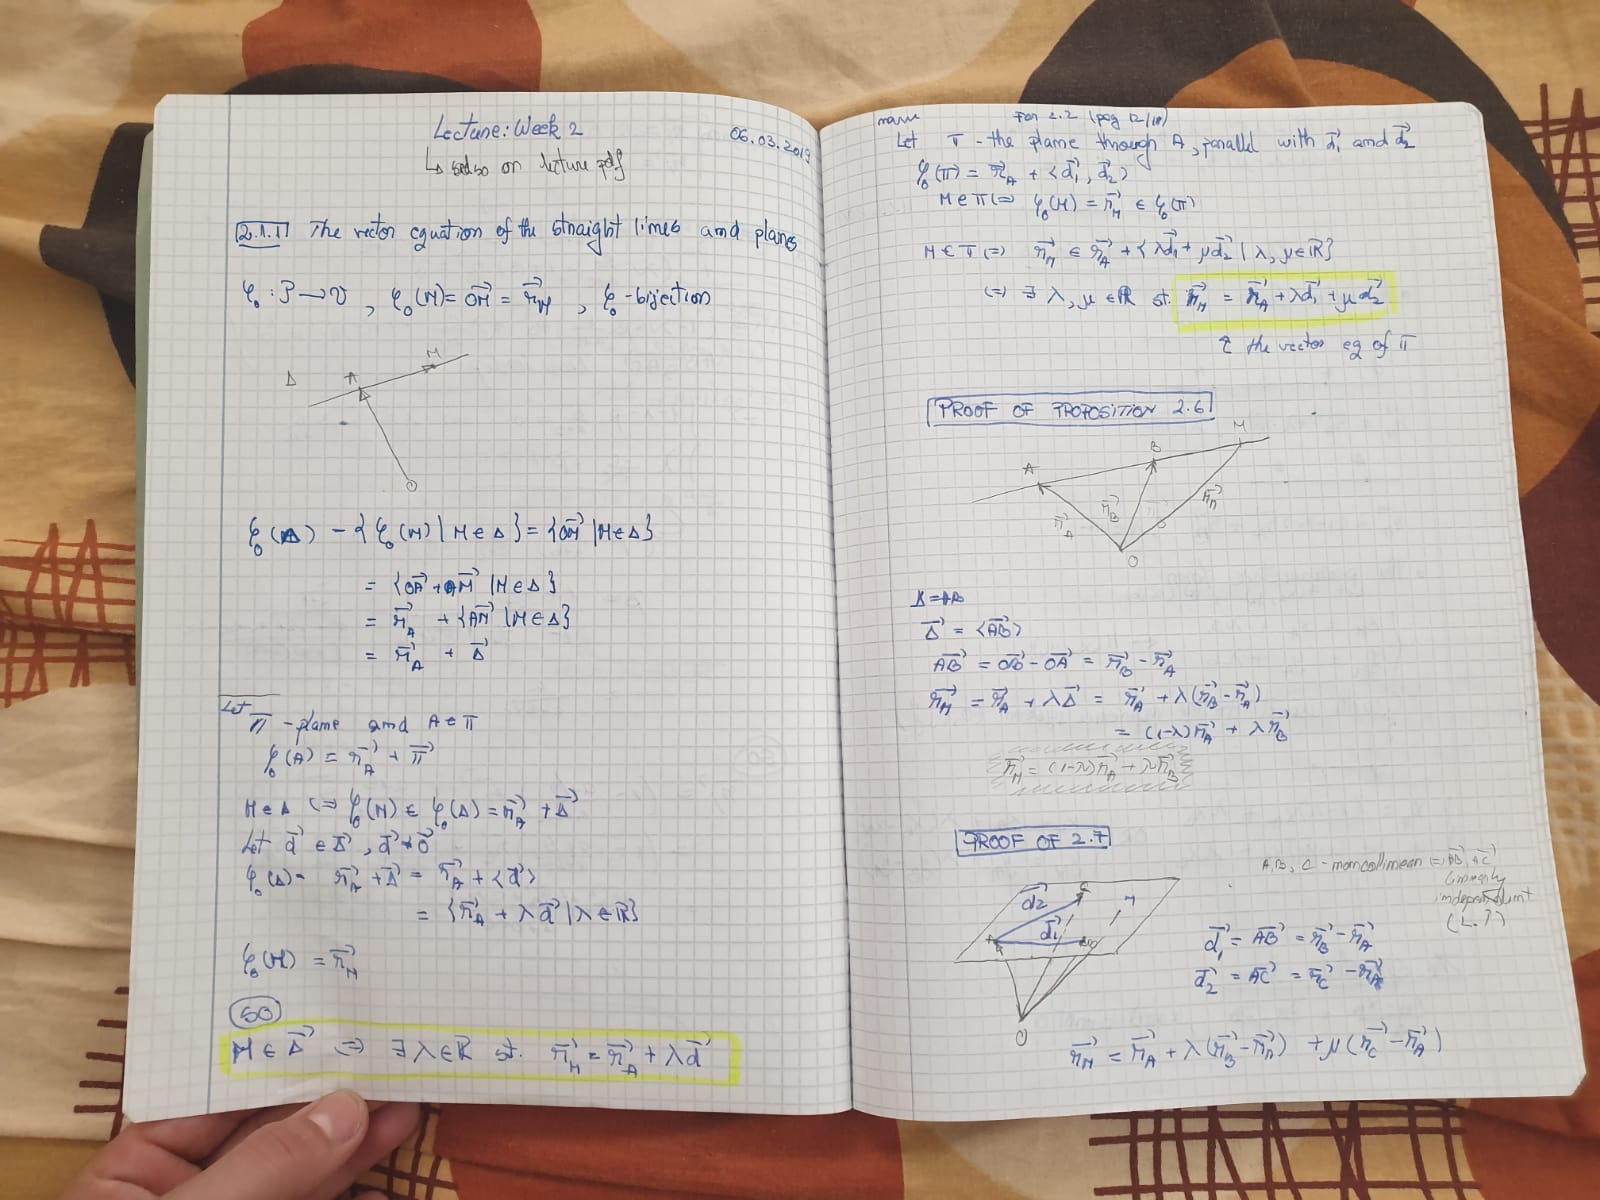 Lecture: Week 2
06.03.2019
↳ on lecture pdf
2.1.1 The vector equation of the straight lines and planes
φ₀ : P → V , φ₀(M) = OM⃗ = r⃗_M , φ₀ - bijection
Δ A M
O
φ₀(Δ) = {φ₀(M) | M ∈ Δ} = {OM⃗ | M ∈ Δ}
= {OA⃗ + AM⃗ | M ∈ Δ}
= r⃗_A + {AM⃗ | M ∈ Δ}
= r⃗_A + Δ⃗
Let
π - plane and A ∈ π
φ₀(A) = r⃗_A + π⃗
M ∈ Δ ⇔ φ₀(M) ∈ φ₀(Δ) = r⃗_A + Δ⃗
Let d⃗ ∈ Δ⃗ , d⃗ ≠ 0⃗
φ₀(Δ) = r⃗_A + Δ⃗ = r⃗_A + <d⃗>
= {r⃗_A + λd⃗ | λ ∈ ℝ}
φ₀(M) = r⃗_M
SO
M ∈ Δ⃗ ⇔ ∃ λ ∈ ℝ st. r⃗_M = r⃗_A + λd⃗
For 2.2 (pag 12/18)
Let π - the plane through A, parallel with d⃗₁ and d⃗₂
φ₀(π) = r⃗_A + <d⃗₁, d⃗₂>
M ∈ π ⇔ φ₀(M) = r⃗_M ∈ φ₀(π)
M ∈ π ⇔ r⃗_M ∈ r⃗_A + {λd⃗₁ + μd⃗₂ | λ, μ ∈ ℝ}
⇔ ∃ λ, μ ∈ ℝ st. r⃗_M = r⃗_A + λd⃗₁ + μd⃗₂
the vector eq of π
PROOF OF PROPOSITION 2.6
A B M
r⃗_A r⃗_B r⃗_M
O
Δ = AB
Δ⃗ = <AB⃗>
AB⃗ = OB⃗ - OA⃗ = r⃗_B - r⃗_A
r⃗_M = r⃗_A + λΔ⃗ = r⃗_A + λ(r⃗_B - r⃗_A)
= (1-λ)r⃗_A + λr⃗_B
r⃗_M = (1-λ)r⃗_A + λr⃗_B
PROOF OF 2.7
A, B, C - noncollinear ⇒ AB⃗, AC⃗
linearly
independent
(L.I)
d⃗₂ C
A d⃗₁
O
d⃗₁ = AB⃗ = r⃗_B - r⃗_A
d⃗₂ = AC⃗ = r⃗_C - r⃗_A
r⃗_M = r⃗_A + λ(r⃗_B - r⃗_A) + μ(r⃗_C - r⃗_A)